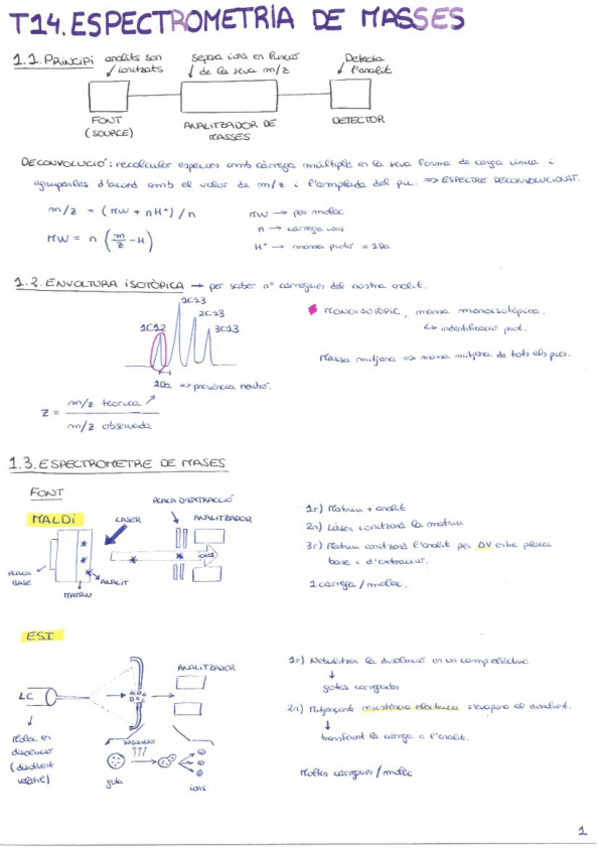 T14. ESPECTROMETRIA DE MASSES
1.1. PRINCIPI
analits són ionitzats
separa ions en funció de la seva m/z
Detecta l'analit
FONT (SOURCE)
ANALITZADOR DE MASSES
DETECTOR
DECONVOLUCIÓ: recalcular espècies amb càrrega múltiple en la seva forma de carga única i
agrupar-les d'acord amb el valor de m/z i l'amplada del pic. => ESPECTRE DECONVOLUCIONAT.
m/z = (MW + nH⁺) / n
MW → pes molec
MW = n (m/z - H)
n → càrrega ions
H⁺ → massa protó = 1Da
1.2. ENVOLTURA ISOTÒPICA → per saber nº càrregues del nostre analit.
1C13
2C13
1C12
3C13
MONOISOTÒPIC, massa monoisotòpica.
↳ indentificació prot.
Massa mitjana => massa mitjana de tots els pics.
1Da => presència neutró.
Z = m/z teòrica / m/z observada
1.3. ESPECTROMETRE DE MASES
FONT
MALDI
LASER
PLACA D'EXTRACCIÓ
ANALITZADOR
IONS
PLACA BASE
MATRIU
ANALIT
1r) Matriu + analit
2n) Làser ionitzarà la matriu
3r) Matriu ionitzarà l'analit per ΔV entre placa
base i d'extracció.
1 carrega / molec.
ESI
ANALITZADOR
LC
Molec en
dissolució
(dissolvent
volàtil)
gota
ions
1r) Nebulitzar la dissolució en un camp elèctric
↓
gotes carregades
2n) Mitjançant resistència elèctrica s'evapora el dissolvent.
↓
transferint la càrrega a l'analit.
Moltes càrregues / molec
1